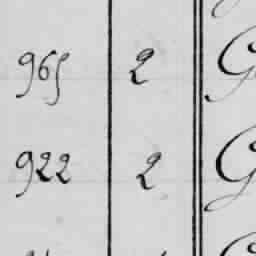 965 2 G
922 2 G